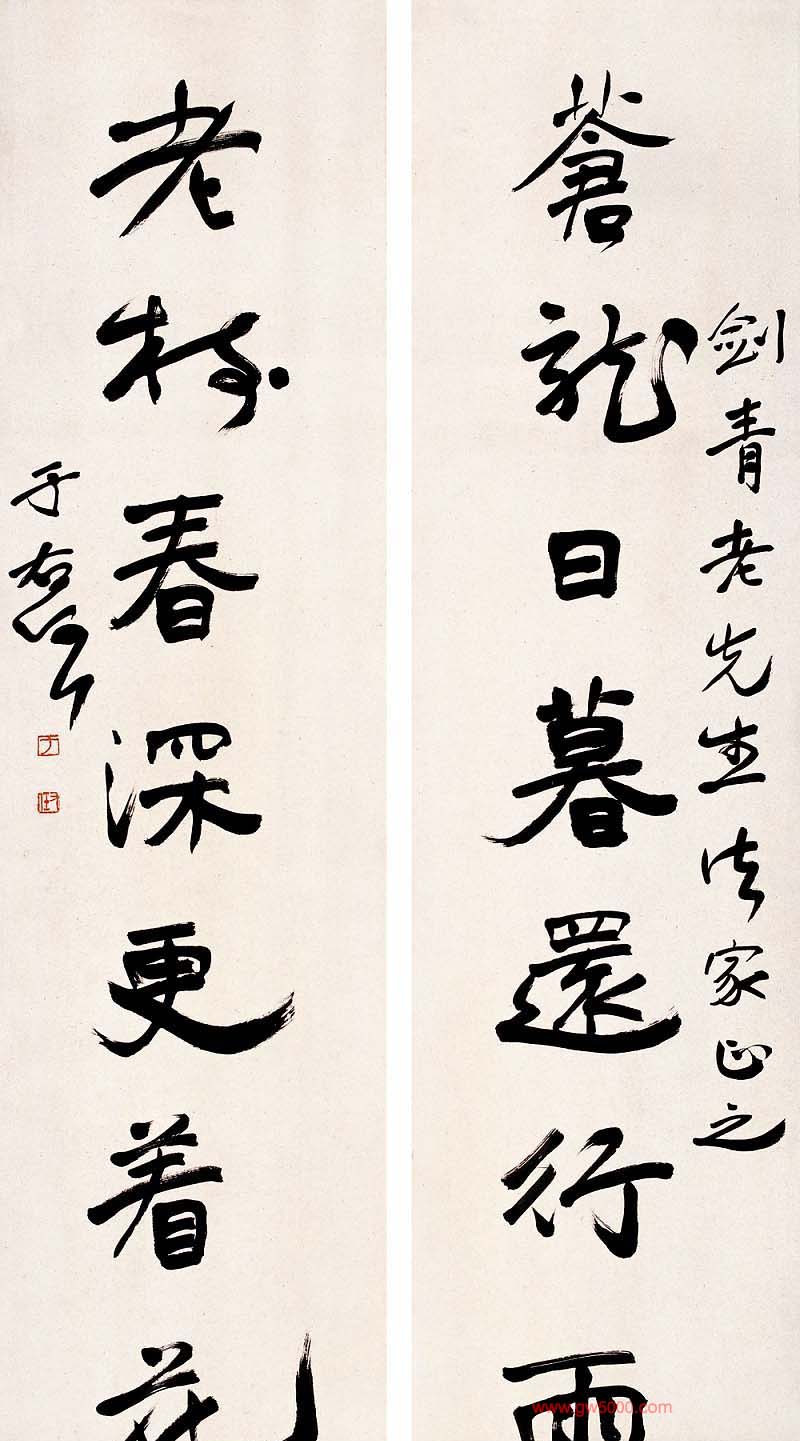 劍青老先生法家正之
蒼龍日暮還行雨
老樹春深更着花
于右任
www.gw5000.com